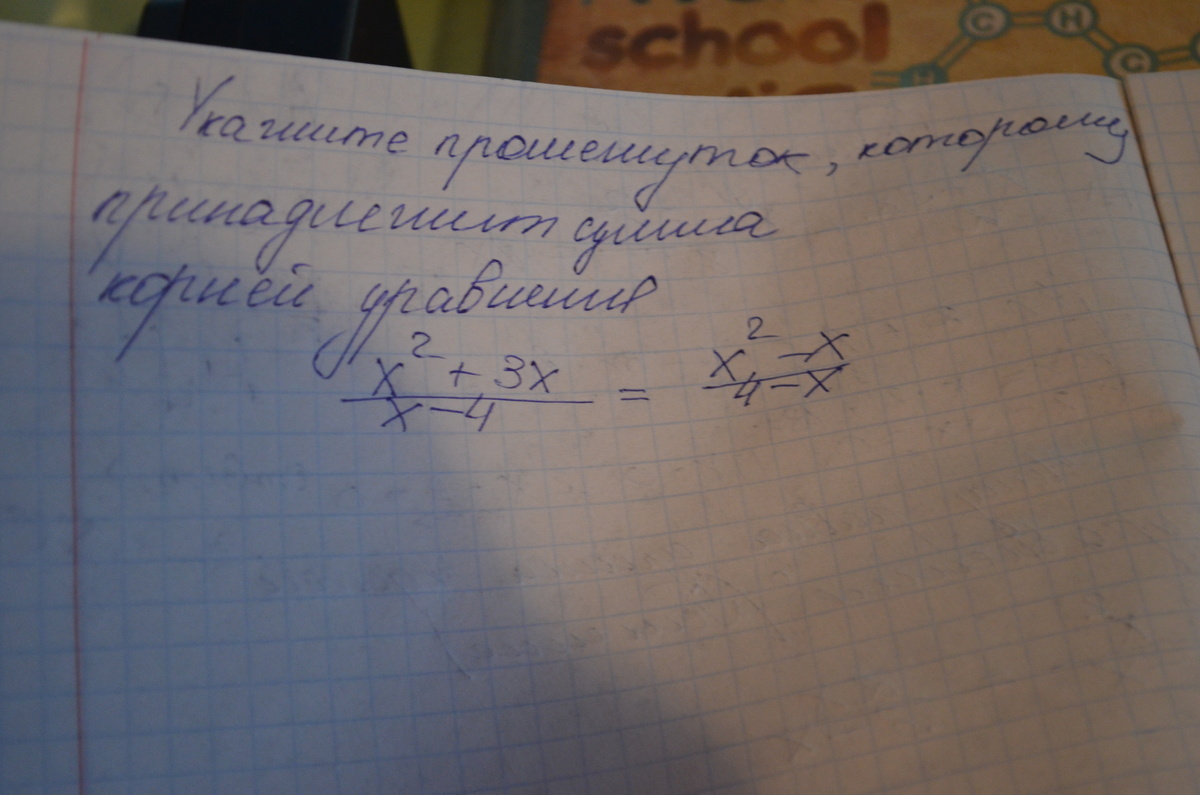 school
C H
H C
Укажите промежуток, которому
принадлежит сумма
корней уравнения
x² + 3x / x – 4 = x² – x / 4 – x